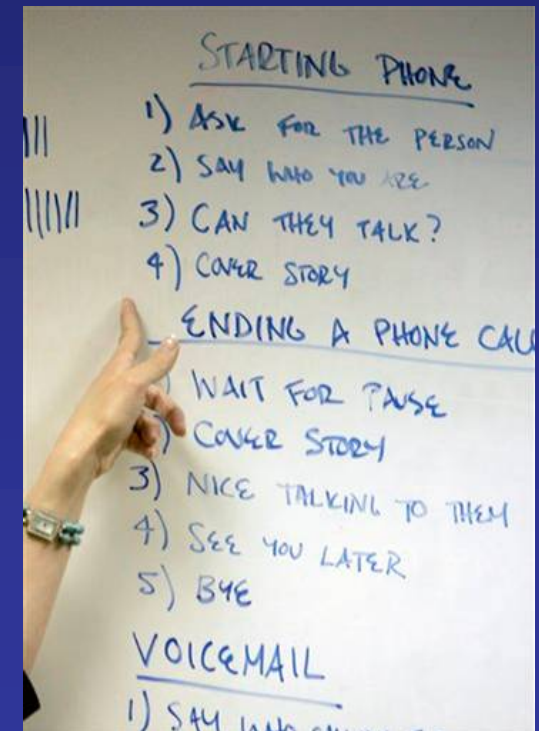 STARTING PHONE
1) ASK FOR THE PERSON
2) SAY WHO YOU ARE
3) CAN THEY TALK?
4) COVER STORY
ENDING A PHONE CAL
) WAIT FOR PAUSE
) COVER STORY
3) NICE TALKING TO THEM
4) SEE YOU LATER
5) BYE
VOICEMAIL
1) SAY WHO